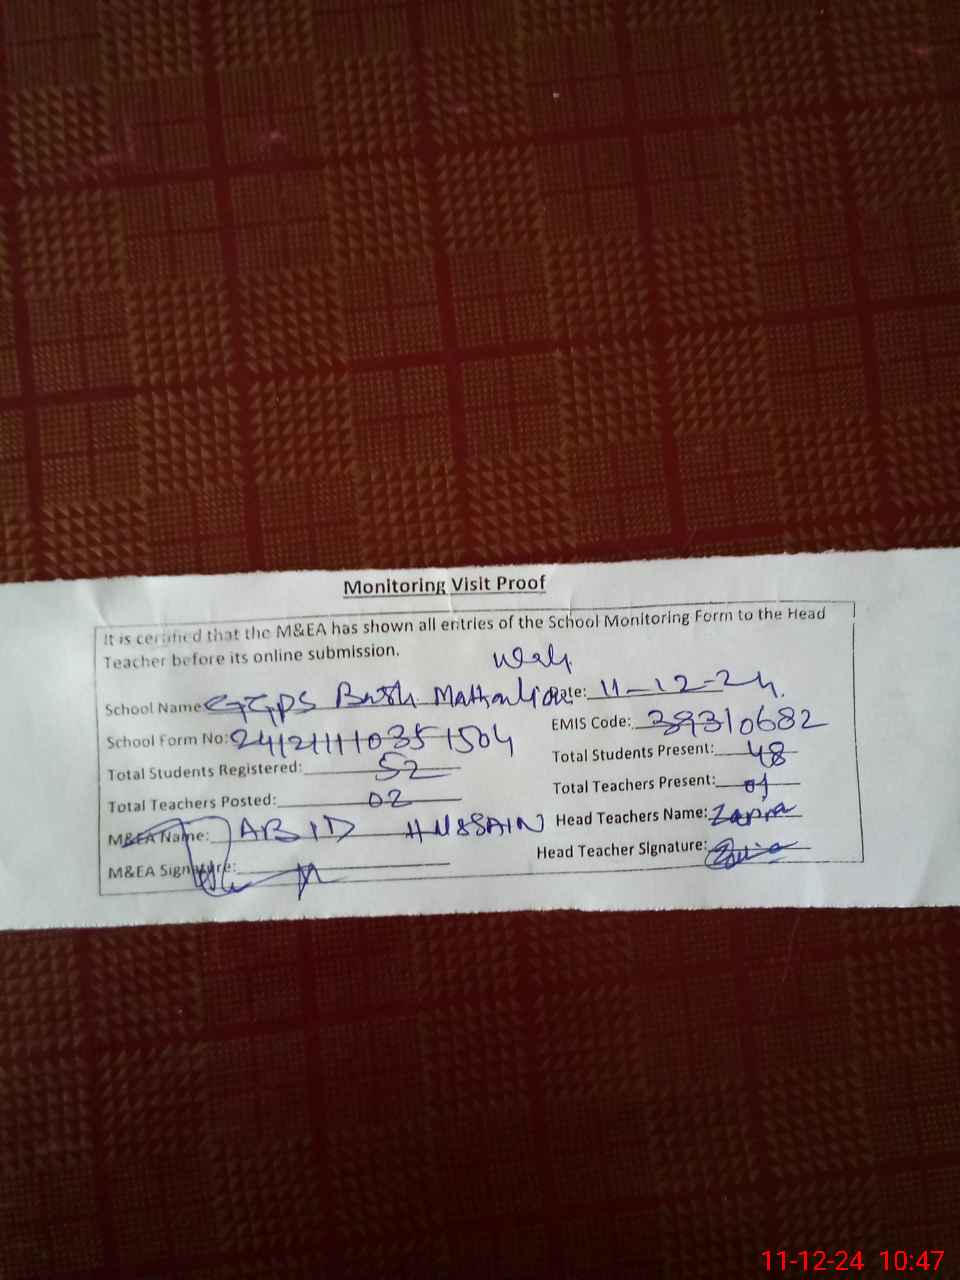 Monitoring Visit Proof
It is certified that the M&EA has shown all entries of the School Monitoring Form to the Head
Teacher before its online submission.
School Name: GGPS Date: 11-12-24
School Form No: 241211110351504 EMIS Code: 39310682
Total Students Registered: 52 Total Students Present: 48
Total Teachers Posted: 02 Total Teachers Present: 01
M&EA Name: ABID HUSSAIN Head Teachers Name:
M&EA Signature: Head Teacher Signature:
11-12-24 10:47